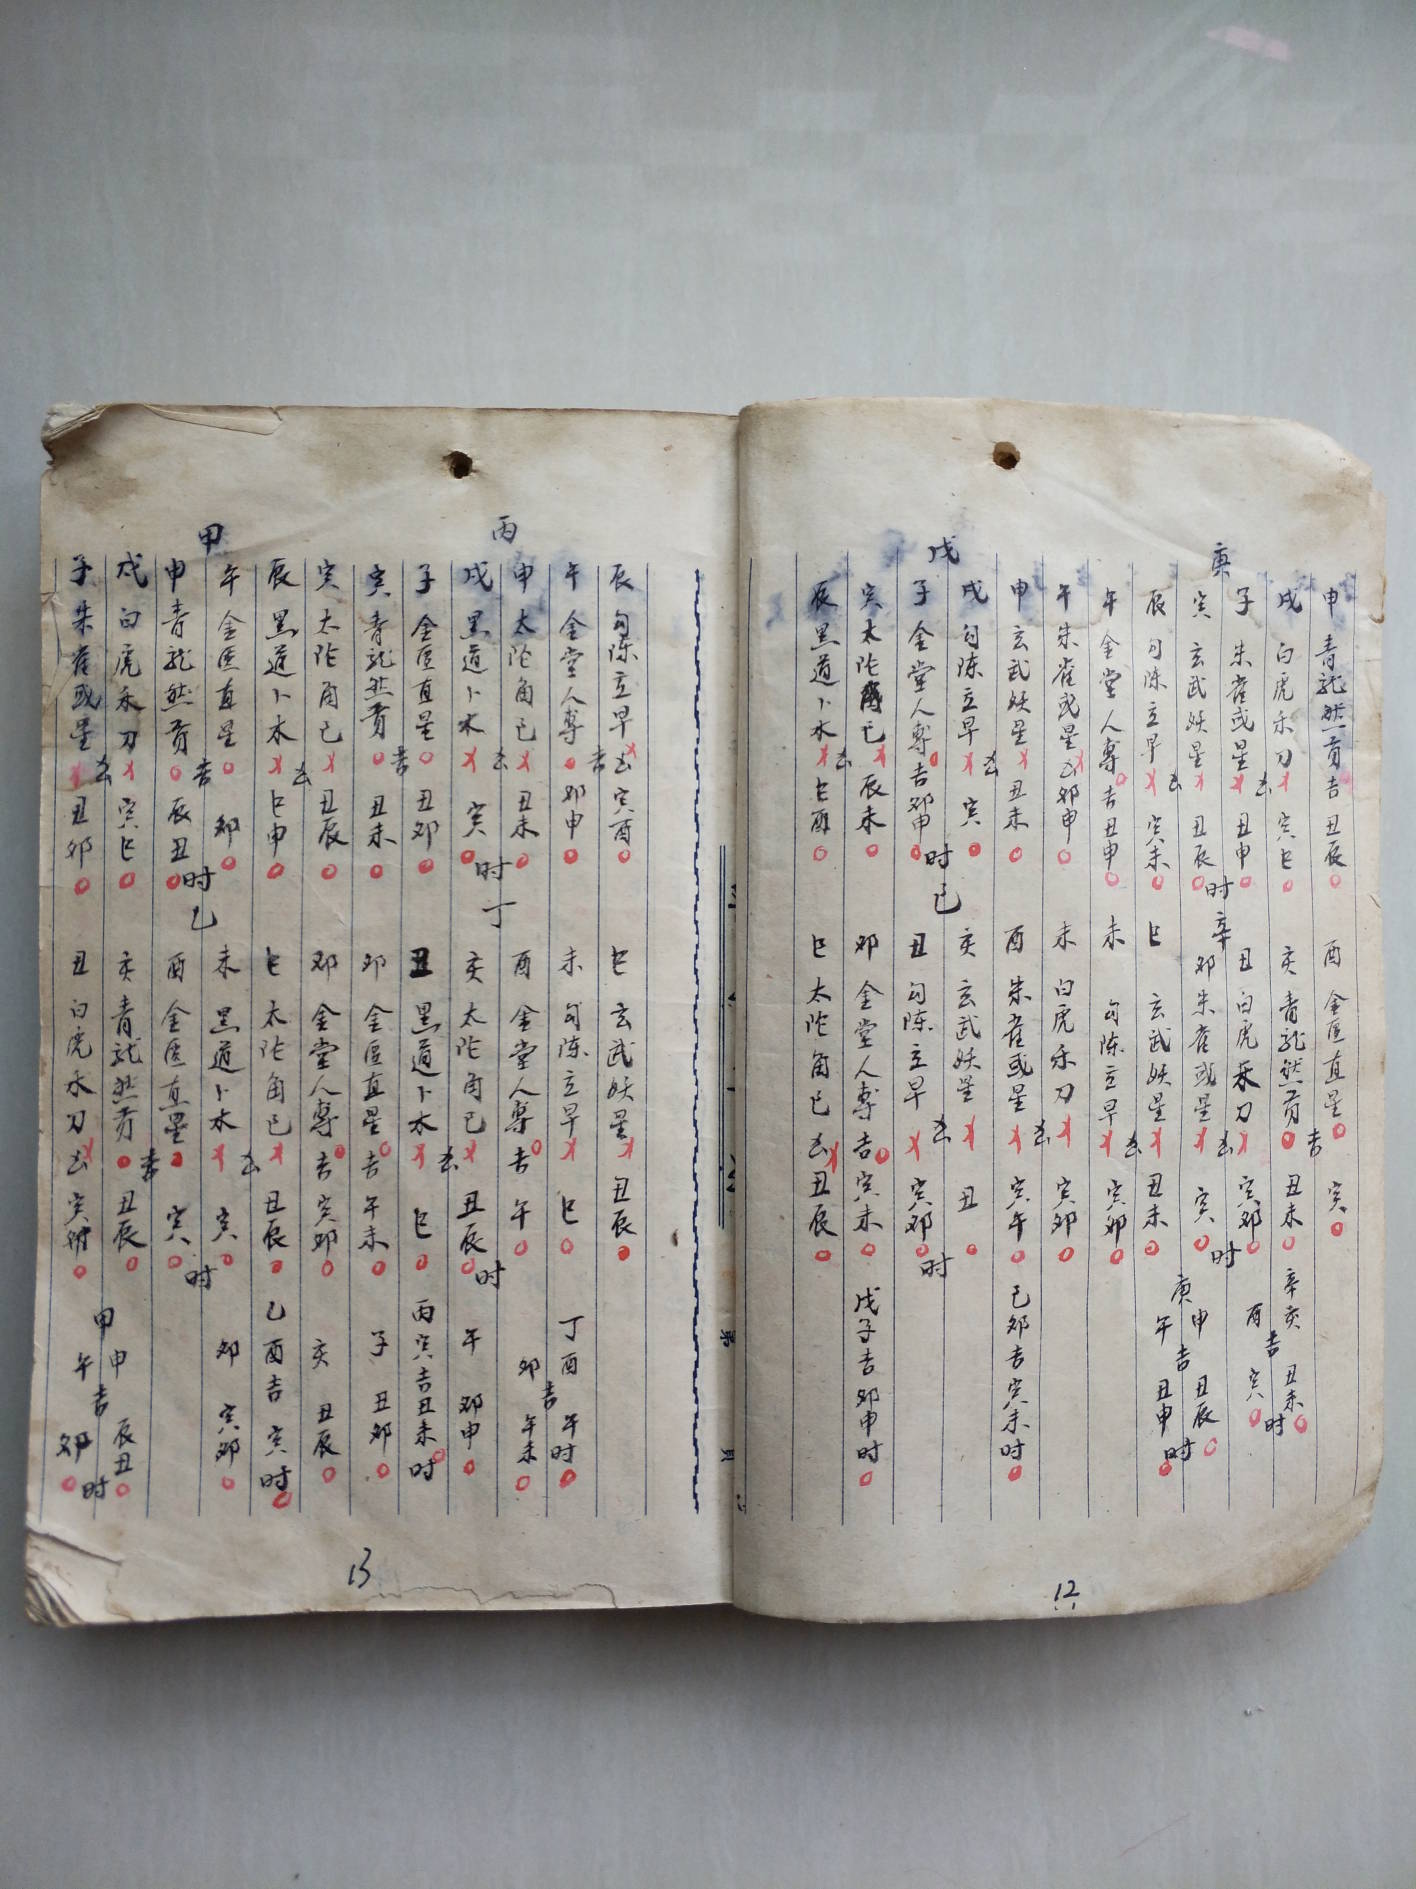 庚
申 青龙然贡 吉 丑辰
戌 白虎禾刀 寅巳
子 朱雀或星 丑申
寅 玄武妖星 丑辰 时
辰 勾陈立早 寅未
午 金堂人专 吉 丑申
午 朱雀或星 卯申
申 玄武妖星 丑未
戊
戌 勾陈立早 寅
子 金堂人专 吉 卯申 时
寅 太陀角已 辰未
辰 黑道卜木 巳酉
酉 金匡直星 吉 寅
亥 青龙然贡 丑未 辛亥 吉 丑未 时
辛
丑 白虎禾刀 寅卯 时 酉 寅
卯 朱雀或星 寅 庚申 吉 丑辰 时
巳 玄武妖星 丑未 午 丑申
未 勾陈立早 寅卯
未 白虎禾刀 寅卯
酉 朱雀或星 寅午 己卯吉寅未时
己
亥 玄武妖星 丑
丑 勾陈立早 寅卯 时
卯 金堂人专 吉 寅未 戊子吉卯申时
巳 太陀角已 丑辰
12
辰 勾陈立早 寅酉
午 金堂人专 吉 卯申
丙
申 太陀角已 丑未
戌 黑道卜木 寅 时
子 金匡直星 吉 丑卯
寅 青龙然贡 丑未
寅 太陀角已 丑辰
辰 黑道卜木 巳申
甲
午 金匡直星 吉 卯
申 青龙然贡 辰丑 时
戌 白虎禾刀 寅巳
子 朱雀或星 丑卯
巳 玄武妖星 丑辰
未 勾陈立早 巳 丁酉 吉 午时
丁
酉 金堂人专 吉 午 卯 午未
亥 太陀角已 丑辰 时 午 卯申
丑 黑道卜木 巳 丙寅吉丑未时
卯 金匡直星 吉 午未 子 丑卯
卯 金堂人专 吉 寅卯 亥 丑辰
巳 太陀角已 丑辰 乙酉吉 寅时
乙
未 黑道卜木 寅 卯 寅卯
酉 金匡直星 吉 寅 时
亥 青龙然贡 丑辰 甲申 吉 辰丑 时
丑 白虎禾刀 寅 午 卯
13